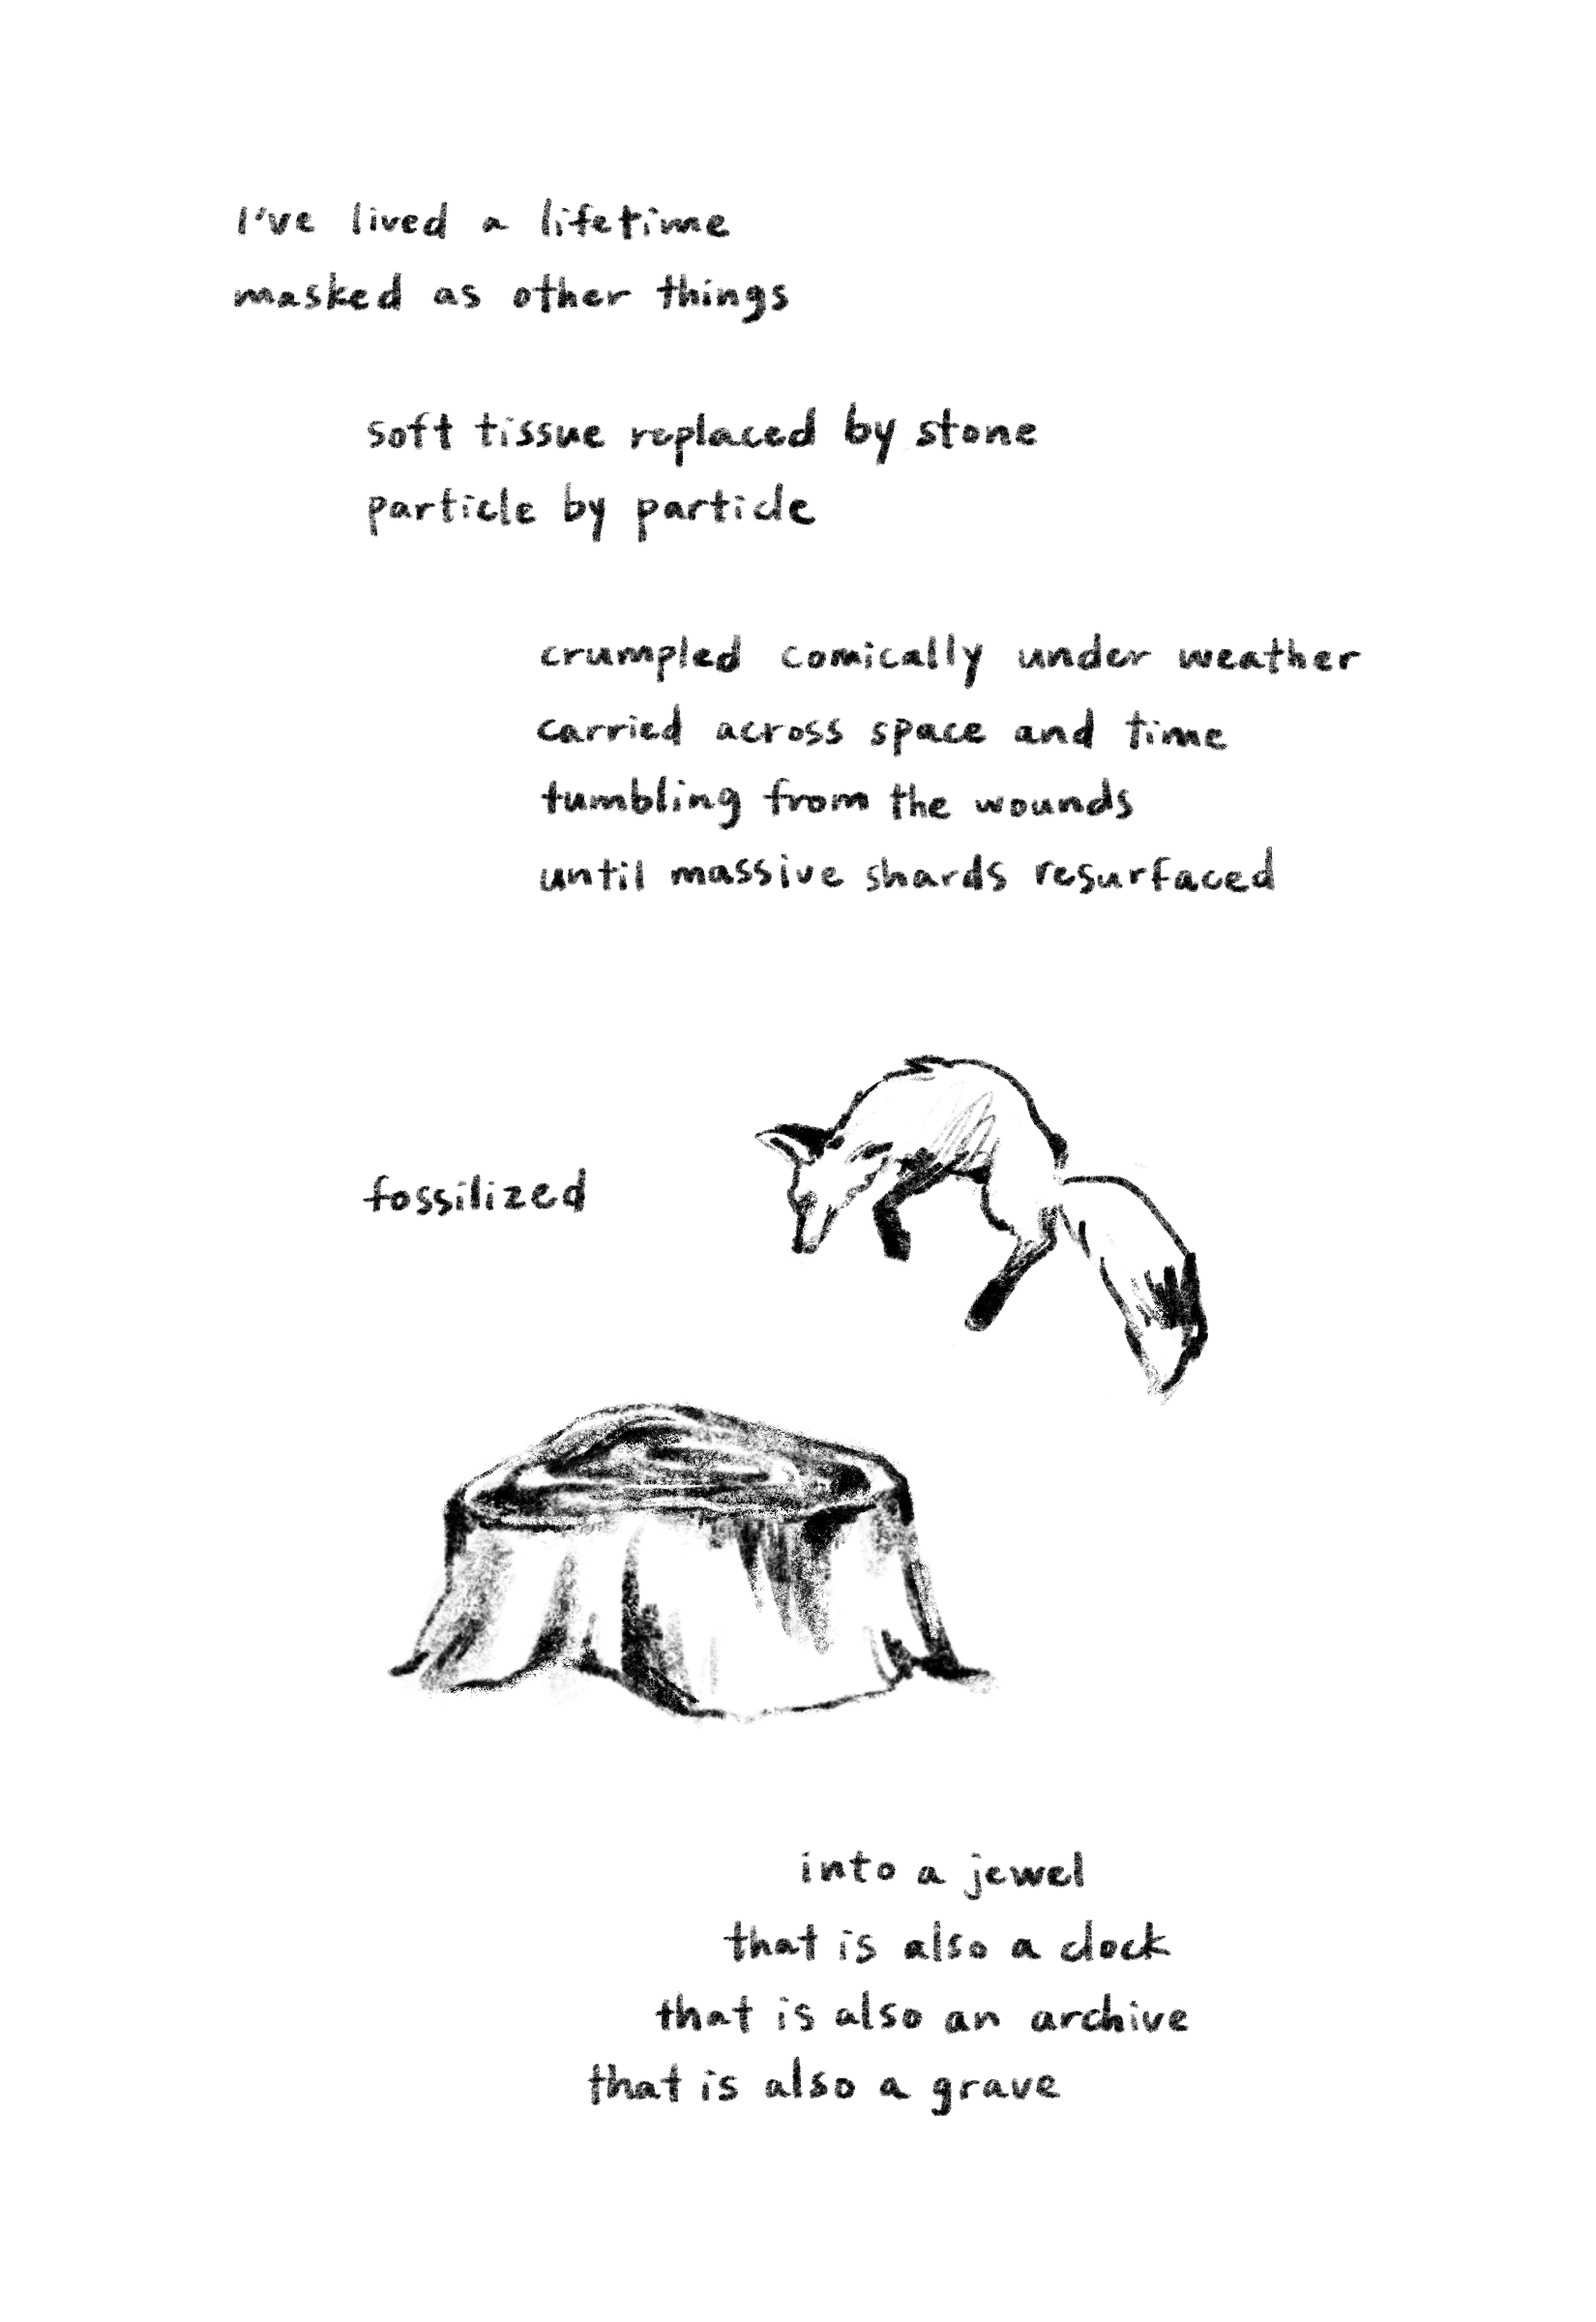 I've lived a lifetime
masked as other things
soft tissue replaced by stone
particle by particle
crumpled comically under weather
carried across space and time
tumbling from the wounds
until massive shards resurfaced
fossilized
into a jewel
that is also a clock
that is also an archive
that is also a grave